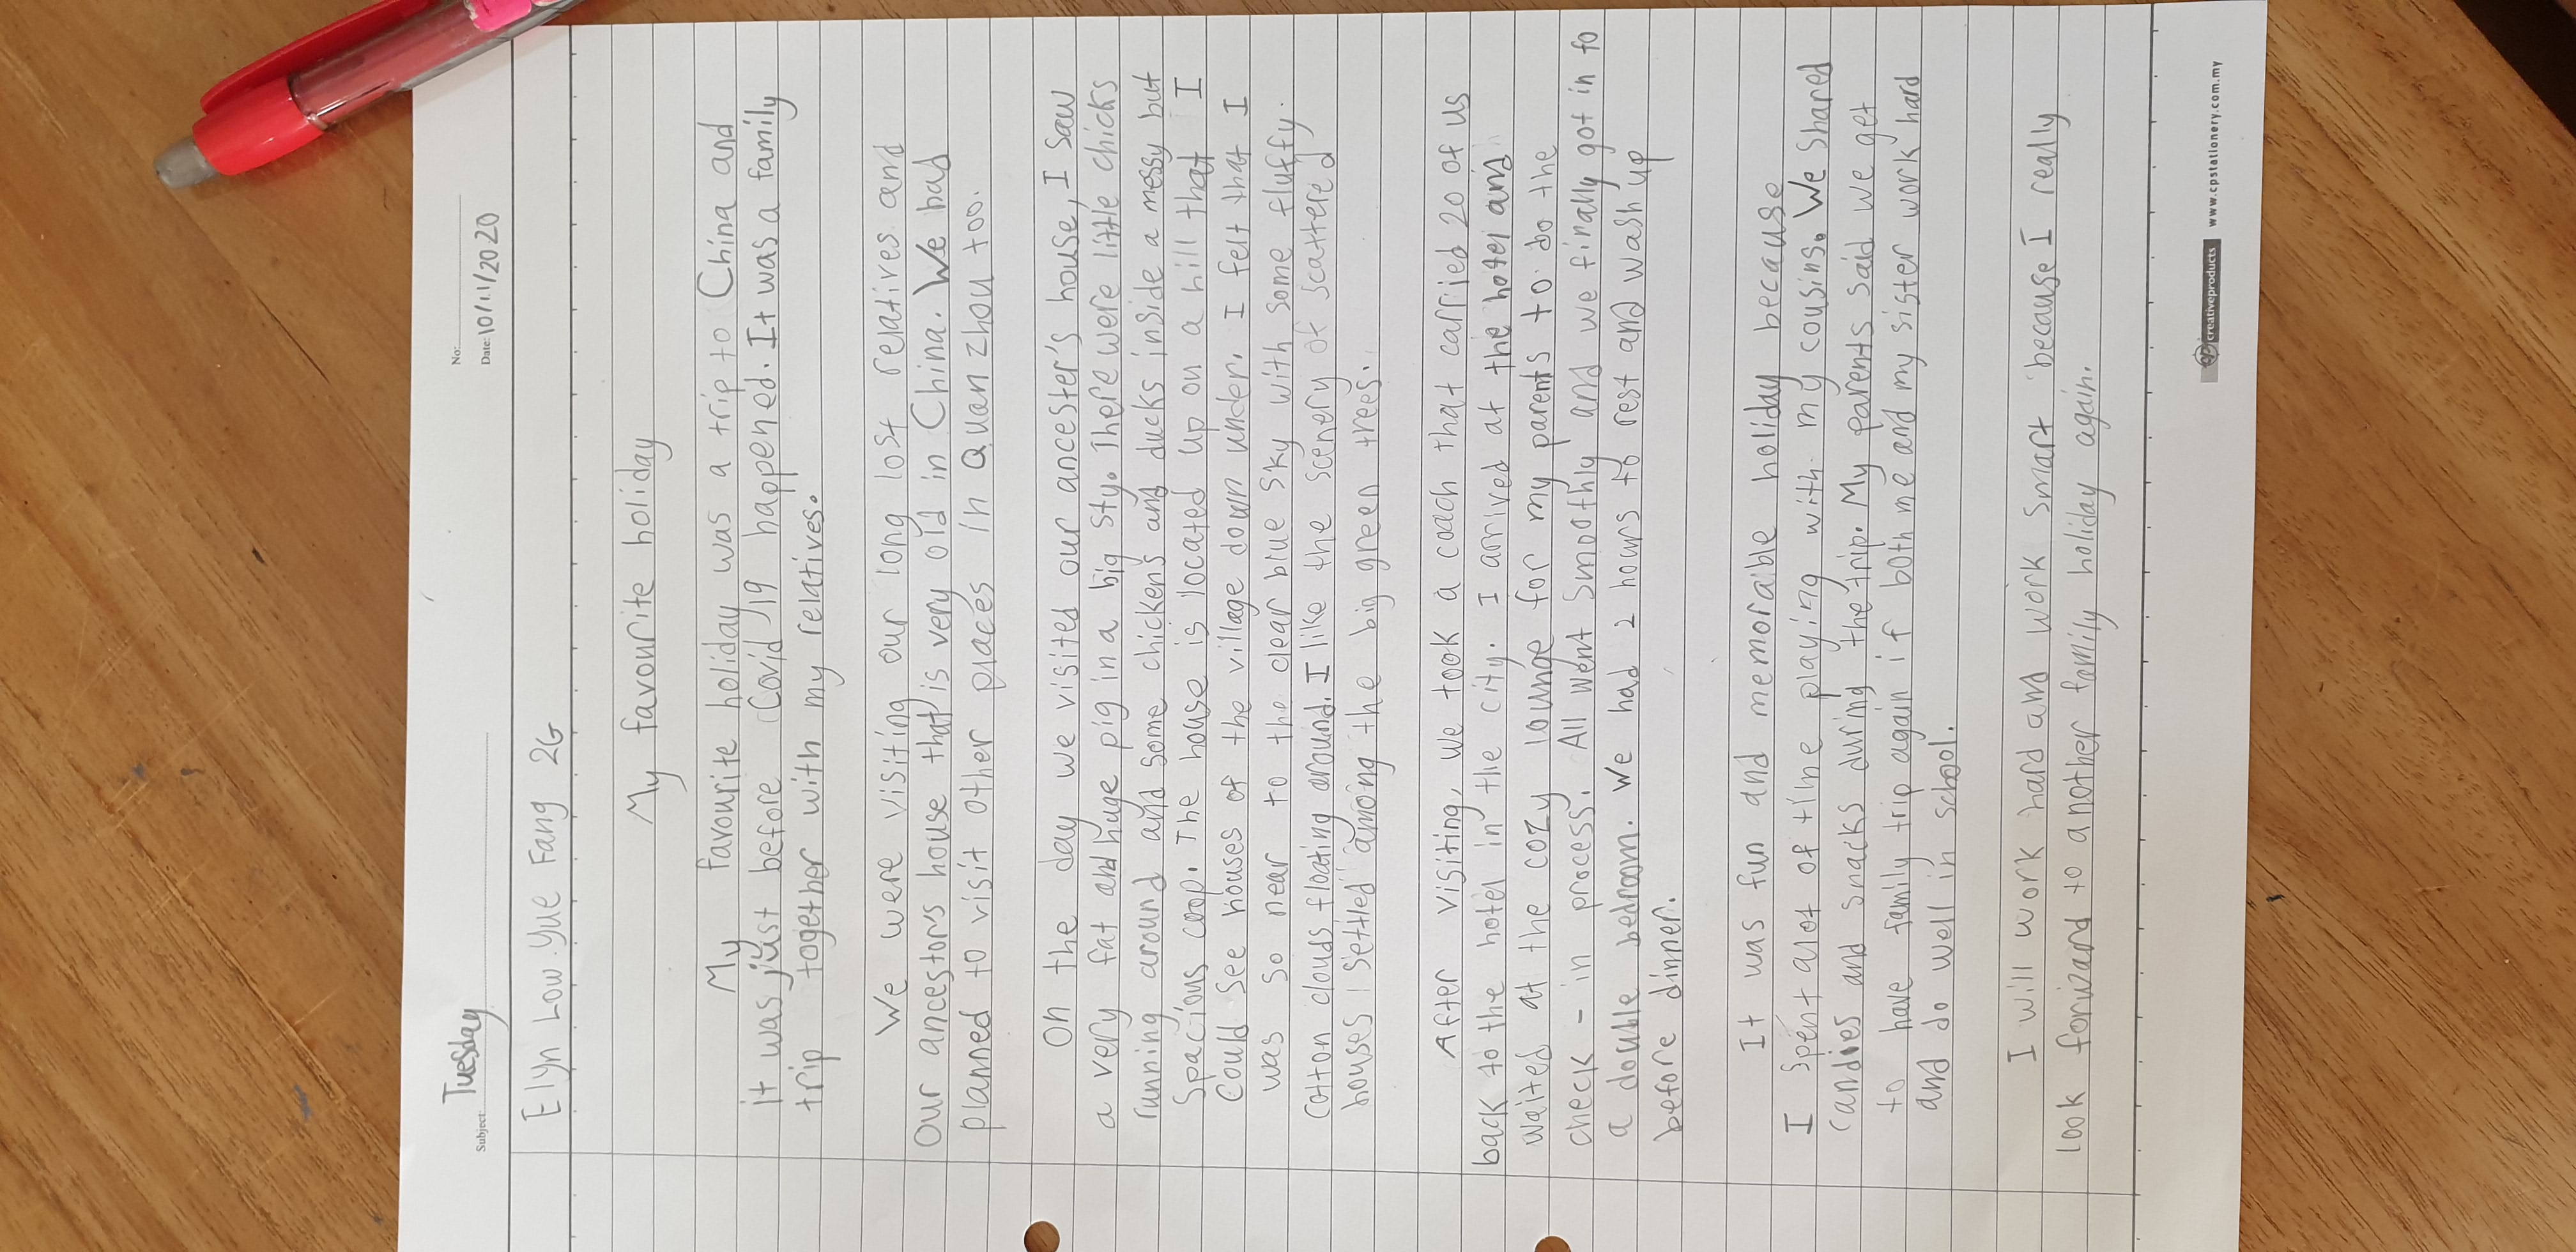 No:
Subject: Tuesday
Date: 10/11/2020
Elyn Low Yue Fang 2G
My favourite holiday
My favourite holiday was a trip to China and
it was just before Covid 19 happened. It was a family
trip together with my relatives.
We were visiting our long lost relatives and
Our ancestors house that is very old in China. We had
planned to visit other places in Quanzhou too.
On the day we visited our ancester's house, I saw
a very fat and huge pig in a big sty. There were little chicks
running around and some chickens and ducks inside a messy but
Spacious coop. The house is located up on a hill that I
could see houses of the village down under. I felt that I
was so near to the clear blue sky with some fluffy
cotton clouds floating around. I like the scenery of scattered
houses settled among the big green trees.
After visiting, we took a coach that carried 20 of us
back to the hotel in the city. I arrived at the hotel and
waited at the cozy lounge for my parents to do the
check-in process. All went smoothly and we finally got in to
a double bedroom. We had 2 hours to rest and wash up
before dinner.
It was fun and memorable holiday because
I spent alot of time playing with my cousins. We shared
candies and snacks during the trip. My parents said we get
to have family trip again if both me and my sister work hard
and do well in school.
I will work hard and work smart because I really
look forward to another family holiday again.
creativeproducts www.cpstationery.com.my